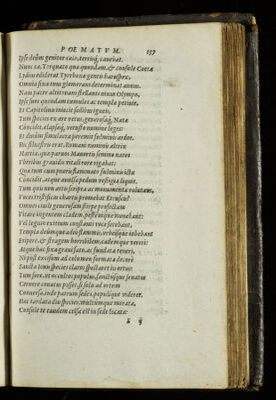 POEMATVM. 157
Ipse deûm genitor cælo, terrisq́; canebat.
Nunc ea, Torquato quæ quondam, & consule Cotta
Lydius ediderat Tyrrhenæ gentis haruspex,
Omnia fixa tuus glomerans determinat annus.
Nam pater altitonans stellanti nixus Olympo,
Ipse suos quondam tumulos ac templa petiuit,
Et Capitolinis iniecit sedibus ignes.
Tum species ex ære vetus, generosaq́; Nattæ
Concidit, elapsæq́; vetusto numine leges:
Et diuûm simulacra peremit fulminis ardor.
Hic siluestris erat, Romani nominis altrix
Martia, quæ paruos Mauortis semine natos
Vberibus grauidis vitali rore rigabat:
Quæ tum cum pueris flammato fulminis ictu
Concidit, atque auulsa pedum vestigia liquit.
Tum quis non artis scripta ac monumenta volutans,
Voces tristificas chartis promebat Etruscis?
Omnes ciuilis generosam stirpe profectam
Vitare ingentem cladem, pestemque monebant:
Vel legum exitium constanti voce ferebant,
Templa deûmque adeo flammis, vrbesque iubebant
Eripere, & stragem horribilem, cædemque vereri:
Atque hæc fixa graui fato, ac fundata teneri,
Ni post excelsum ad columen formata decorè
Sancta Iouis species claros spectaret in ortus:
Tum fore, vt occultos populus, sanctúsque senatus
Cernere conatus posset, si solis ad ortum
Conuersa, inde patrum sedes, populíque videret.
Hæc tardata diu species, multúmque morata,
Consule te tandem celsa est in sede locata: